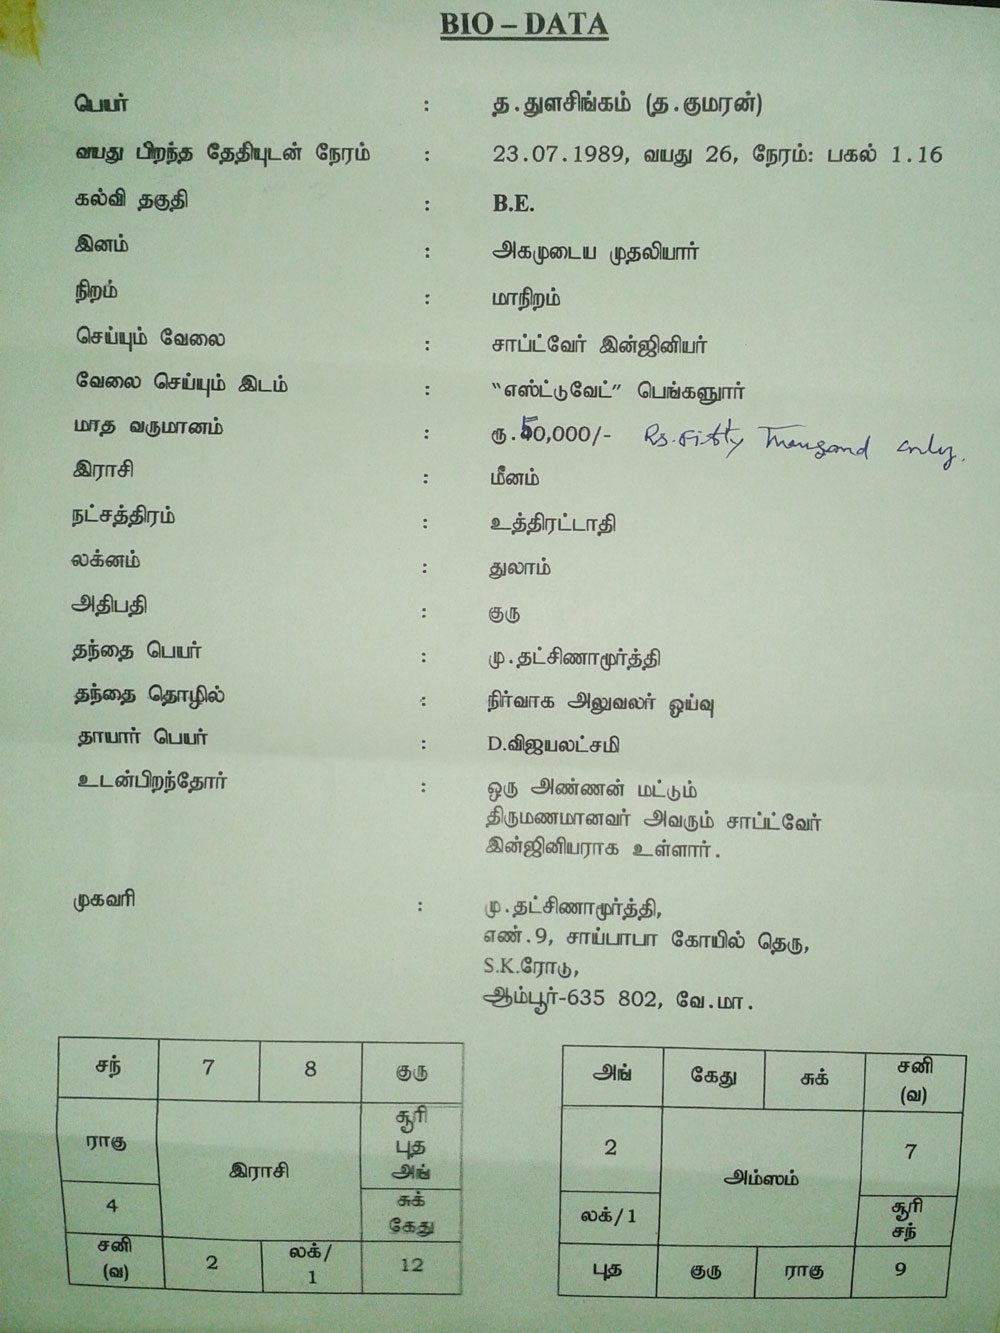 BIO – DATA
பெயர் : த.துளசிங்கம் (த.குமரன்)
வயது பிறந்த தேதியுடன் நேரம் : 23.07.1989, வயது 26, நேரம்: பகல் 1.16
கல்வி தகுதி : B.E.
இனம் : அகமுடைய முதலியார்
நிறம் : மாநிறம்
செய்யும் வேலை : சாப்ட்வேர் இன்ஜினியர்
வேலை செய்யும் இடம் : “எஸ்ட்டுவேட்” பெங்களூர்
மாத வருமானம் : ரூ.50,000/- Rs. Fifty Thousand only.
இராசி : மீனம்
நட்சத்திரம் : உத்திரட்டாதி
லக்னம் : துலாம்
அதிபதி : குரு
தந்தை பெயர் : மு.தட்சிணாமூர்த்தி
தந்தை தொழில் : நிர்வாக அலுவலர் ஓய்வு
தாயார் பெயர் : D.விஜயலட்சமி
உடன்பிறந்தோர் : ஒரு அண்ணன் மட்டும்
திருமணமானவர் அவரும் சாப்ட்வேர்
இன்ஜினியராக உள்ளார்.
முகவரி : மு.தட்சிணாமூர்த்தி,
எண்.9, சாய்பாபா கோயில் தெரு,
S.K.ரோடு,
ஆம்பூர்-635 802, வே.மா.
சந் 7 8 குரு
ராகு
சூரி
புத
அங்
இராசி
4
சுக்
கேது
சனி
(வ)
2
லக்/
1
12
அங் கேது சுக்
சனி
(வ)
2
7
அம்ஸம்
லக்/1
சூரி
சந்
புத குரு ராகு 9